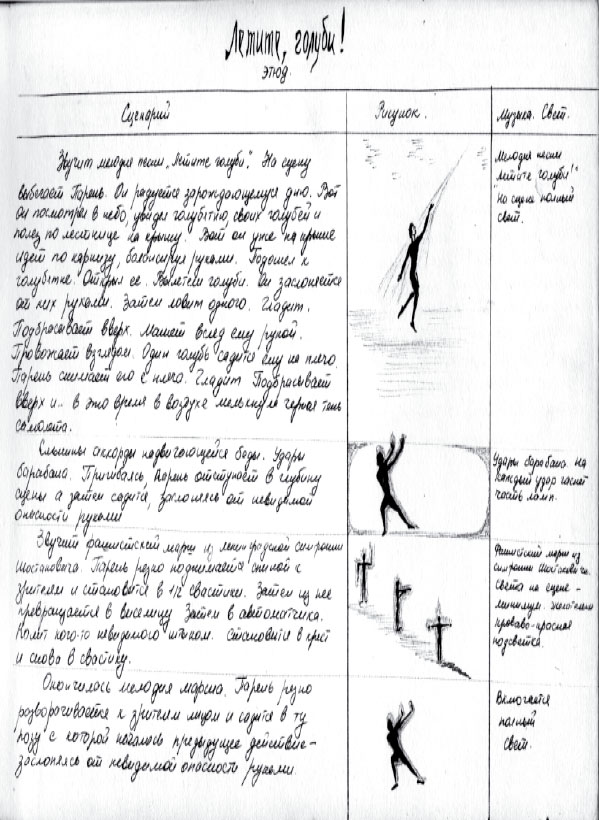 Летите, голуби!
этюд.
Сценарий
Рисунок.
Музыка. Свет.
Звучит мелодия песни „Летите голуби". На сцену
выбегает Парень. Он радуется зарождающемуся дню. Вот
он посмотрел в небо, увидел голубятню, своих голубей и
полез по лестнице на крышу. Вот он уже на крыше
идет по карнизу, балансируя руками. Подошел к
голубятне. Открыл ее. Вылетели голуби. Он заслоняется
от них руками. Затем ловит одного. Гладит.
Подбрасывает вверх. Машет вслед ему рукой.
Провожает взглядом. Один голубь садится ему на плечо.
Парень снимает его с плеча. Гладит. Подбрасывает
вверх и... в это время в воздухе мелькнула черная тень
самолета.
Мелодия песни
„Летите голуби!"
На сцене полный
свет.
Слышны аккорды надвигающейся беды. Удары
барабана. Пригибаясь, Парень отступает в глубину
сцены а затем садится, заслоняясь от невидимой
опасности руками
Удары барабана. На
каждый удар гаснет
часть ламп.
Звучит фашистский марш из ленинградской симфонии
Шостаковича. Парень резко поднимается спиной к
зрителям и становится в 1/2 свастики. Затем из нее
превращается в виселицу. Затем в автоматчика.
Колит кого-то невидимого штыком. Становится в крест
и снова в свастику.
Фашистский марш из
симфонии Шостаковича.
Света на сцене -
минимум. Желательно
кроваво-красная
подсветка.
Окончилась мелодия марша. Парень резко
разворачивается к зрителям лицом и садится в ту
позу с которой началось предыдущее действие -
заслоняясь от невидимой опасности руками.
Включается
полный
свет.